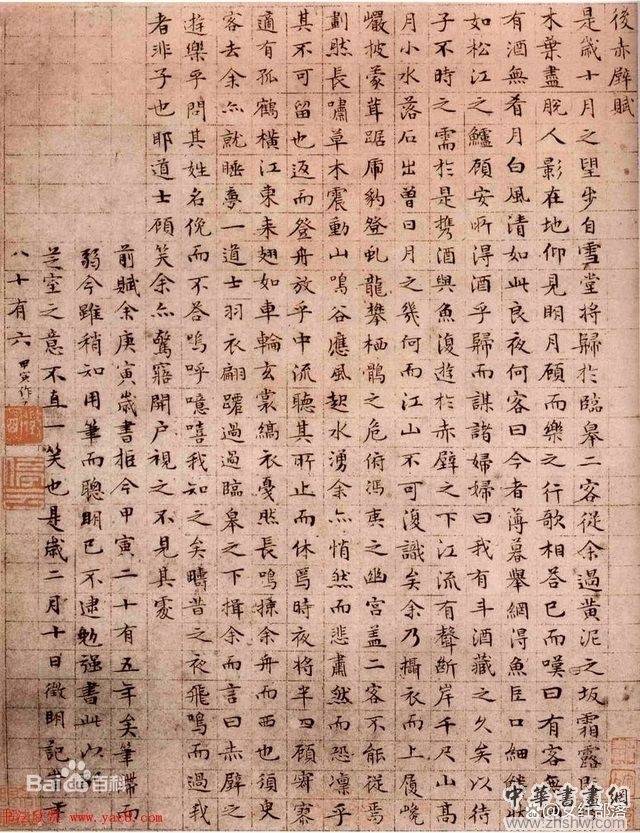 後赤壁賦
是歲十月之望步自雪堂將歸於臨皋二客從余過黃泥之坂霜露既
木葉盡脫人影在地仰見明月顧而樂之行歌相答已而嘆曰有客無
有酒無肴月白風清如此良夜何客曰今者薄暮舉網得魚巨口細鱗狀
如松江之鱸顧安所得酒乎歸而謀諸婦婦曰我有斗酒藏之久矣以待
子不時之需於是攜酒與魚復遊於赤壁之下江流有聲斷岸千尺山高
月小水落石出曾日月之幾何而江山不可復識矣余乃攝衣而上履巉
巖披蒙茸踞虎豹登虬龍攀栖鶻之危俯馮夷之幽宮蓋二客不能從焉
劃然長嘯草木震動山鳴谷應風起水湧余亦悄然而悲肅然而恐凜乎
其不可留也返而登舟放乎中流聽其所止而休焉時夜將半四顧寂寥
適有孤鶴橫江東來翅如車輪玄裳縞衣戛然長鳴掠余舟而西也須臾
客去余亦就睡夢一道士羽衣翩躚過過臨皋之下揖余而言曰赤壁之
遊樂乎問其姓名俛而不答嗚呼噫嘻我知之矣疇昔之夜飛鳴而過我
者非子也耶道士顧笑余亦驚寤開戶視之不見其處
前賦余庚寅歲書拒今甲寅二十有五年矣筆滯而
弱今雖稍知用筆而聰明已不逮勉強書此以
芝室之意不直一笑也是歲三月十日徵明記時年
八十有六 甲寅作
Bai百科
www.yac8.com
中華書畫網
www.zhshw.com